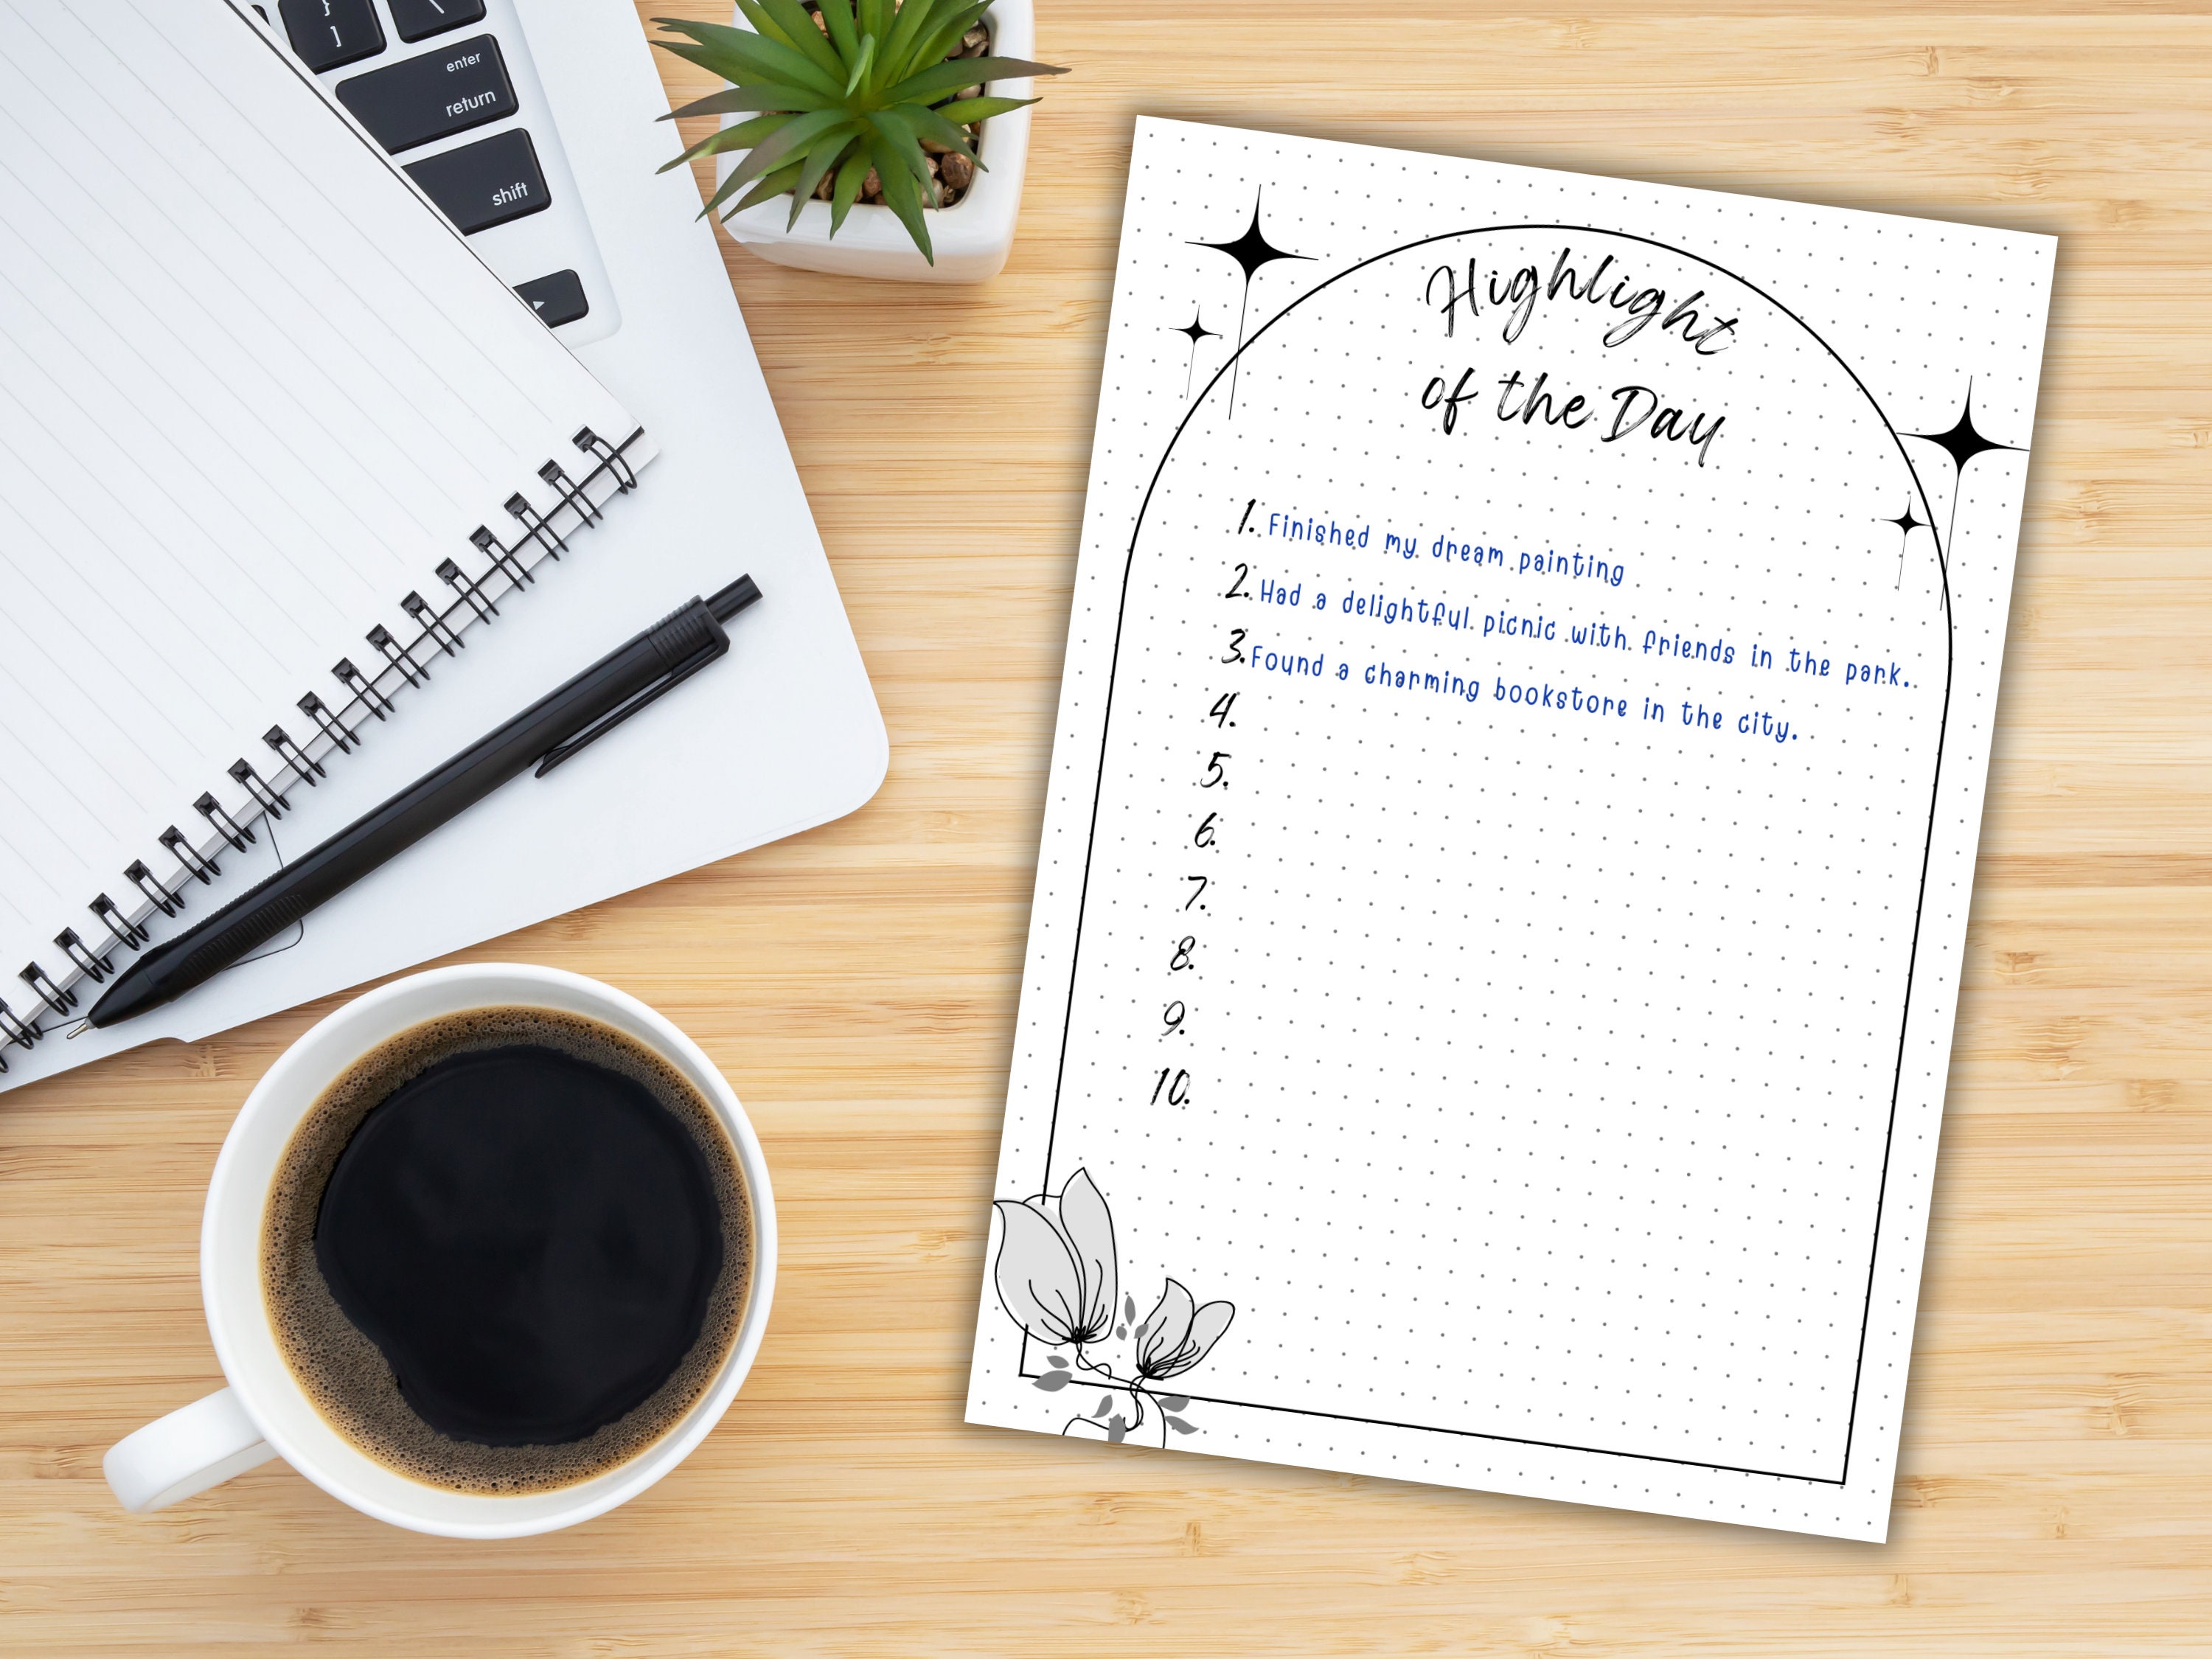 }
]
\
enter
return
shift
Highlight
of the Day
1. Finished my dream painting
2. Had a delightful picnic with friends in the park.
3. Found a charming bookstore in the city.
4.
5.
6.
7.
8.
9.
10.